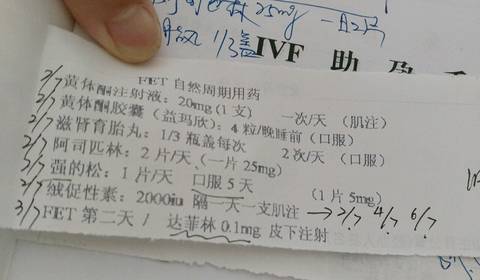 25mg 一日2片
1/3盖
IVF 助孕
FET 自然周期用药
2/7 黄体酮注射液: 20mg(1支) 一次/天 (肌注)
2/7 黄体酮胶囊 (益玛欣): 4粒/晚睡前 (口服)
2/7 滋肾育胎丸: 1/3瓶盖每次 2次/天 (口服)
2/7 阿司匹林: 2片/天 (一片25mg)
3/7 强的松: 1片/天 口服5天 (1片5mg)
2/7 绒促性素: 2000iu 隔一天一支肌注 → 2/7 4/7 6/7
3/7 FET 第二天 / 达菲林0.1mg 皮下注射